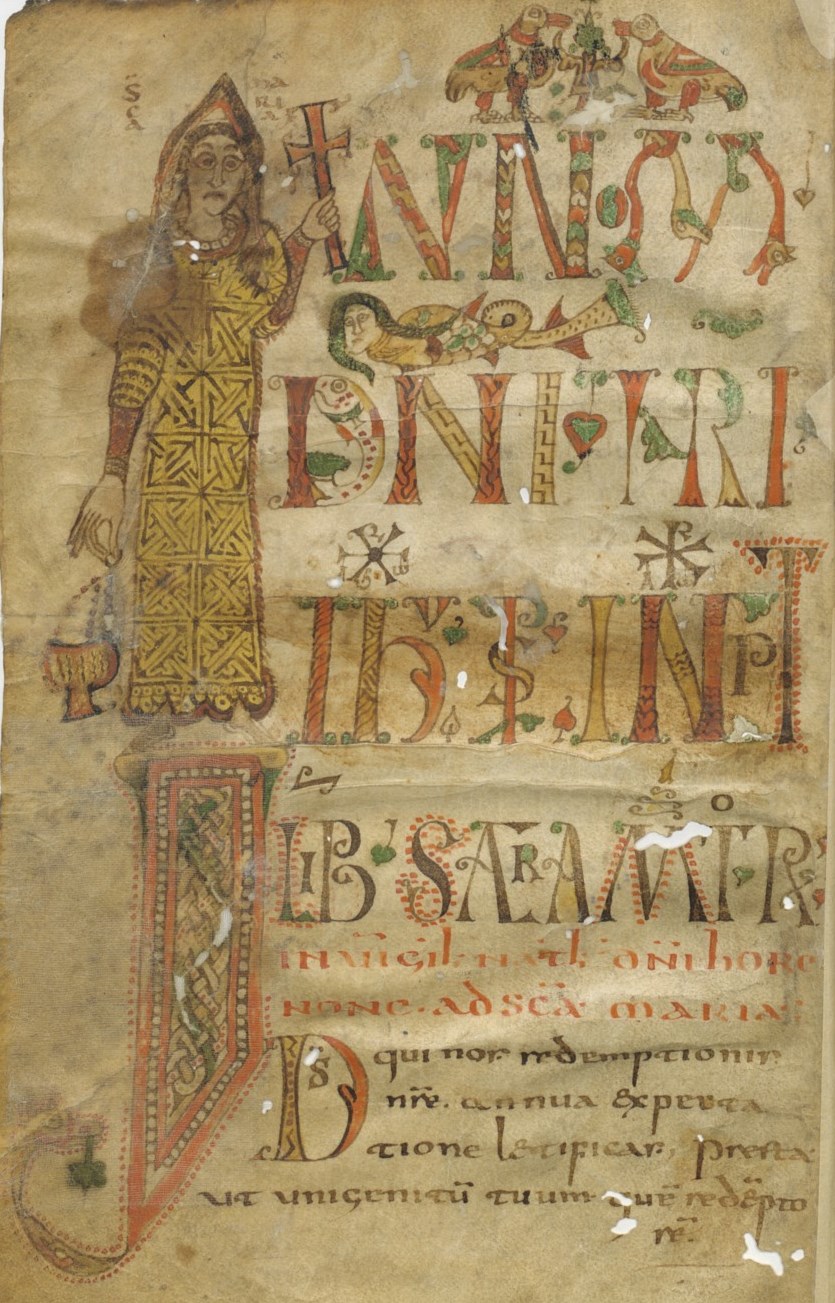 SCA MARIA
IN NOM
DNI NRI
IHV XPI INPT
LIB SACRAM
IN UIGIL NATL DNI HORE
NONE · AD SCA MARIA
DS qui nos redemptionis
nre. annua expecta
tione letificas, presta
ut unigenitū tuum quē redēpto
rē